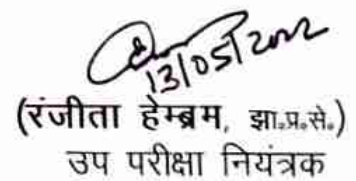 13/05/2022
(रंजीता हेम्ब्रम, झा.प्र.से.)
उप परीक्षा नियंत्रक